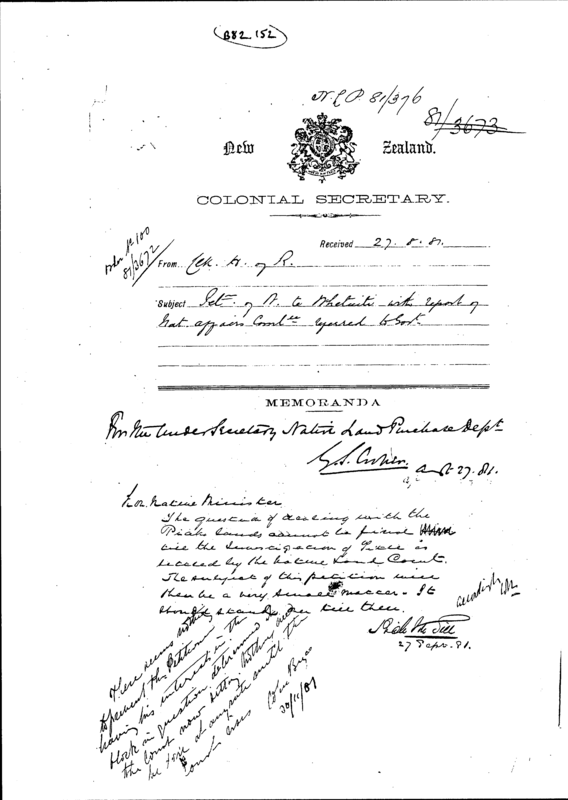 B82.152
N.L.P. 81/376
81/3673
New Zealand.
COLONIAL SECRETARY.
Received 27. 8. 81.
81/3672
From Clk. H. of R.
Subject Petn. of N. te Whetuiti with report of
Nat. affairs Comtee referred to Govt.
MEMORANDA
For the Under Secretary Native Land Purchase Dept
G.S. Cooper. 27. 81.
Hon Native Minister
The question of dealing with the
Piako lands cannot be
till the Investigation of Title is
by the Native Land Court.
The subject of this petition will
then be a very small matter. It
should stand over till then.
27 Sept. 81.
There seems nothing
to prevent this Petitioner
having his interests in the
block in question determined by
the Court now sitting. Nothing
be at any rate until the
Court
30/11/81